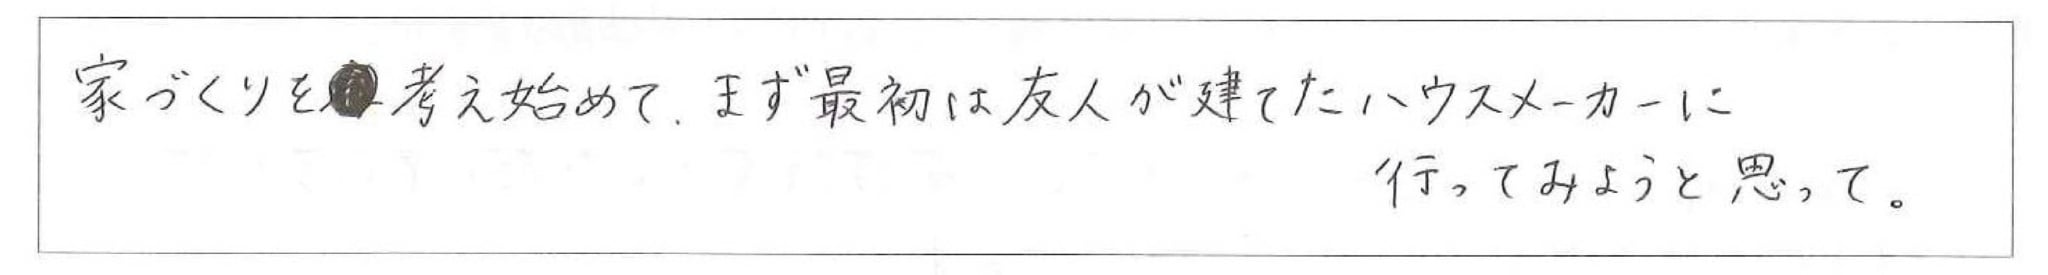 家づくりを考え始めて、まず最初は友人が建てたハウスメーカーに
行ってみようと思って。